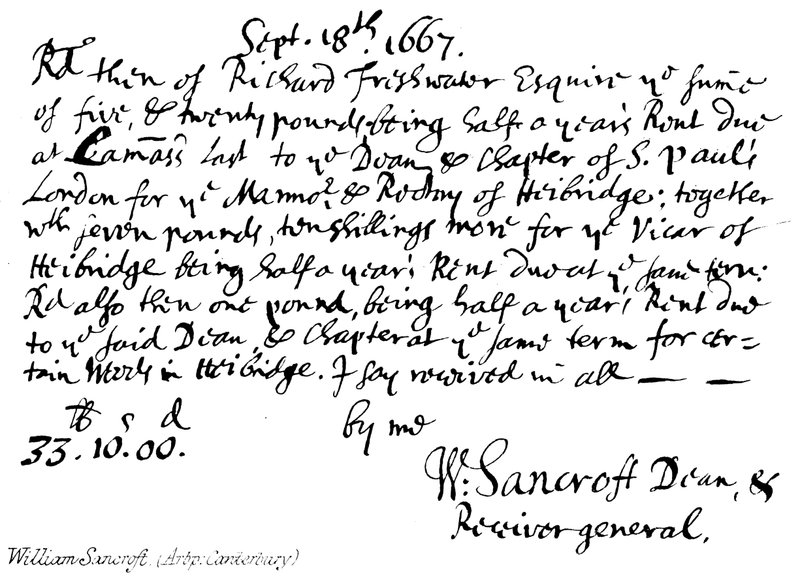 Sept. 18th. 1667.
Rd then of Richard Freshwater Esquire ye sum̄e
of five, & twenty pounds being half a year's Rent due
at Lam̄as's last to ye Dean, & Chapter of S. Paul's
London for ye Mannor, & Rectory of Heibridge; together
wth seven pounds, ten shillings more for ye Vicar of
Heibridge being half a year's Rent due at ye same term:
Rd also then one pound, being half a year's Rent due
to ye said Dean, & Chapter at ye same term for cer=
tain Woods in Heibridge. I say received in all — —
lb s d
by me
33.10.00.
W: Sancroft Dean, &
Receiver general.
William Sancroft. (Arbp: Canterbury)